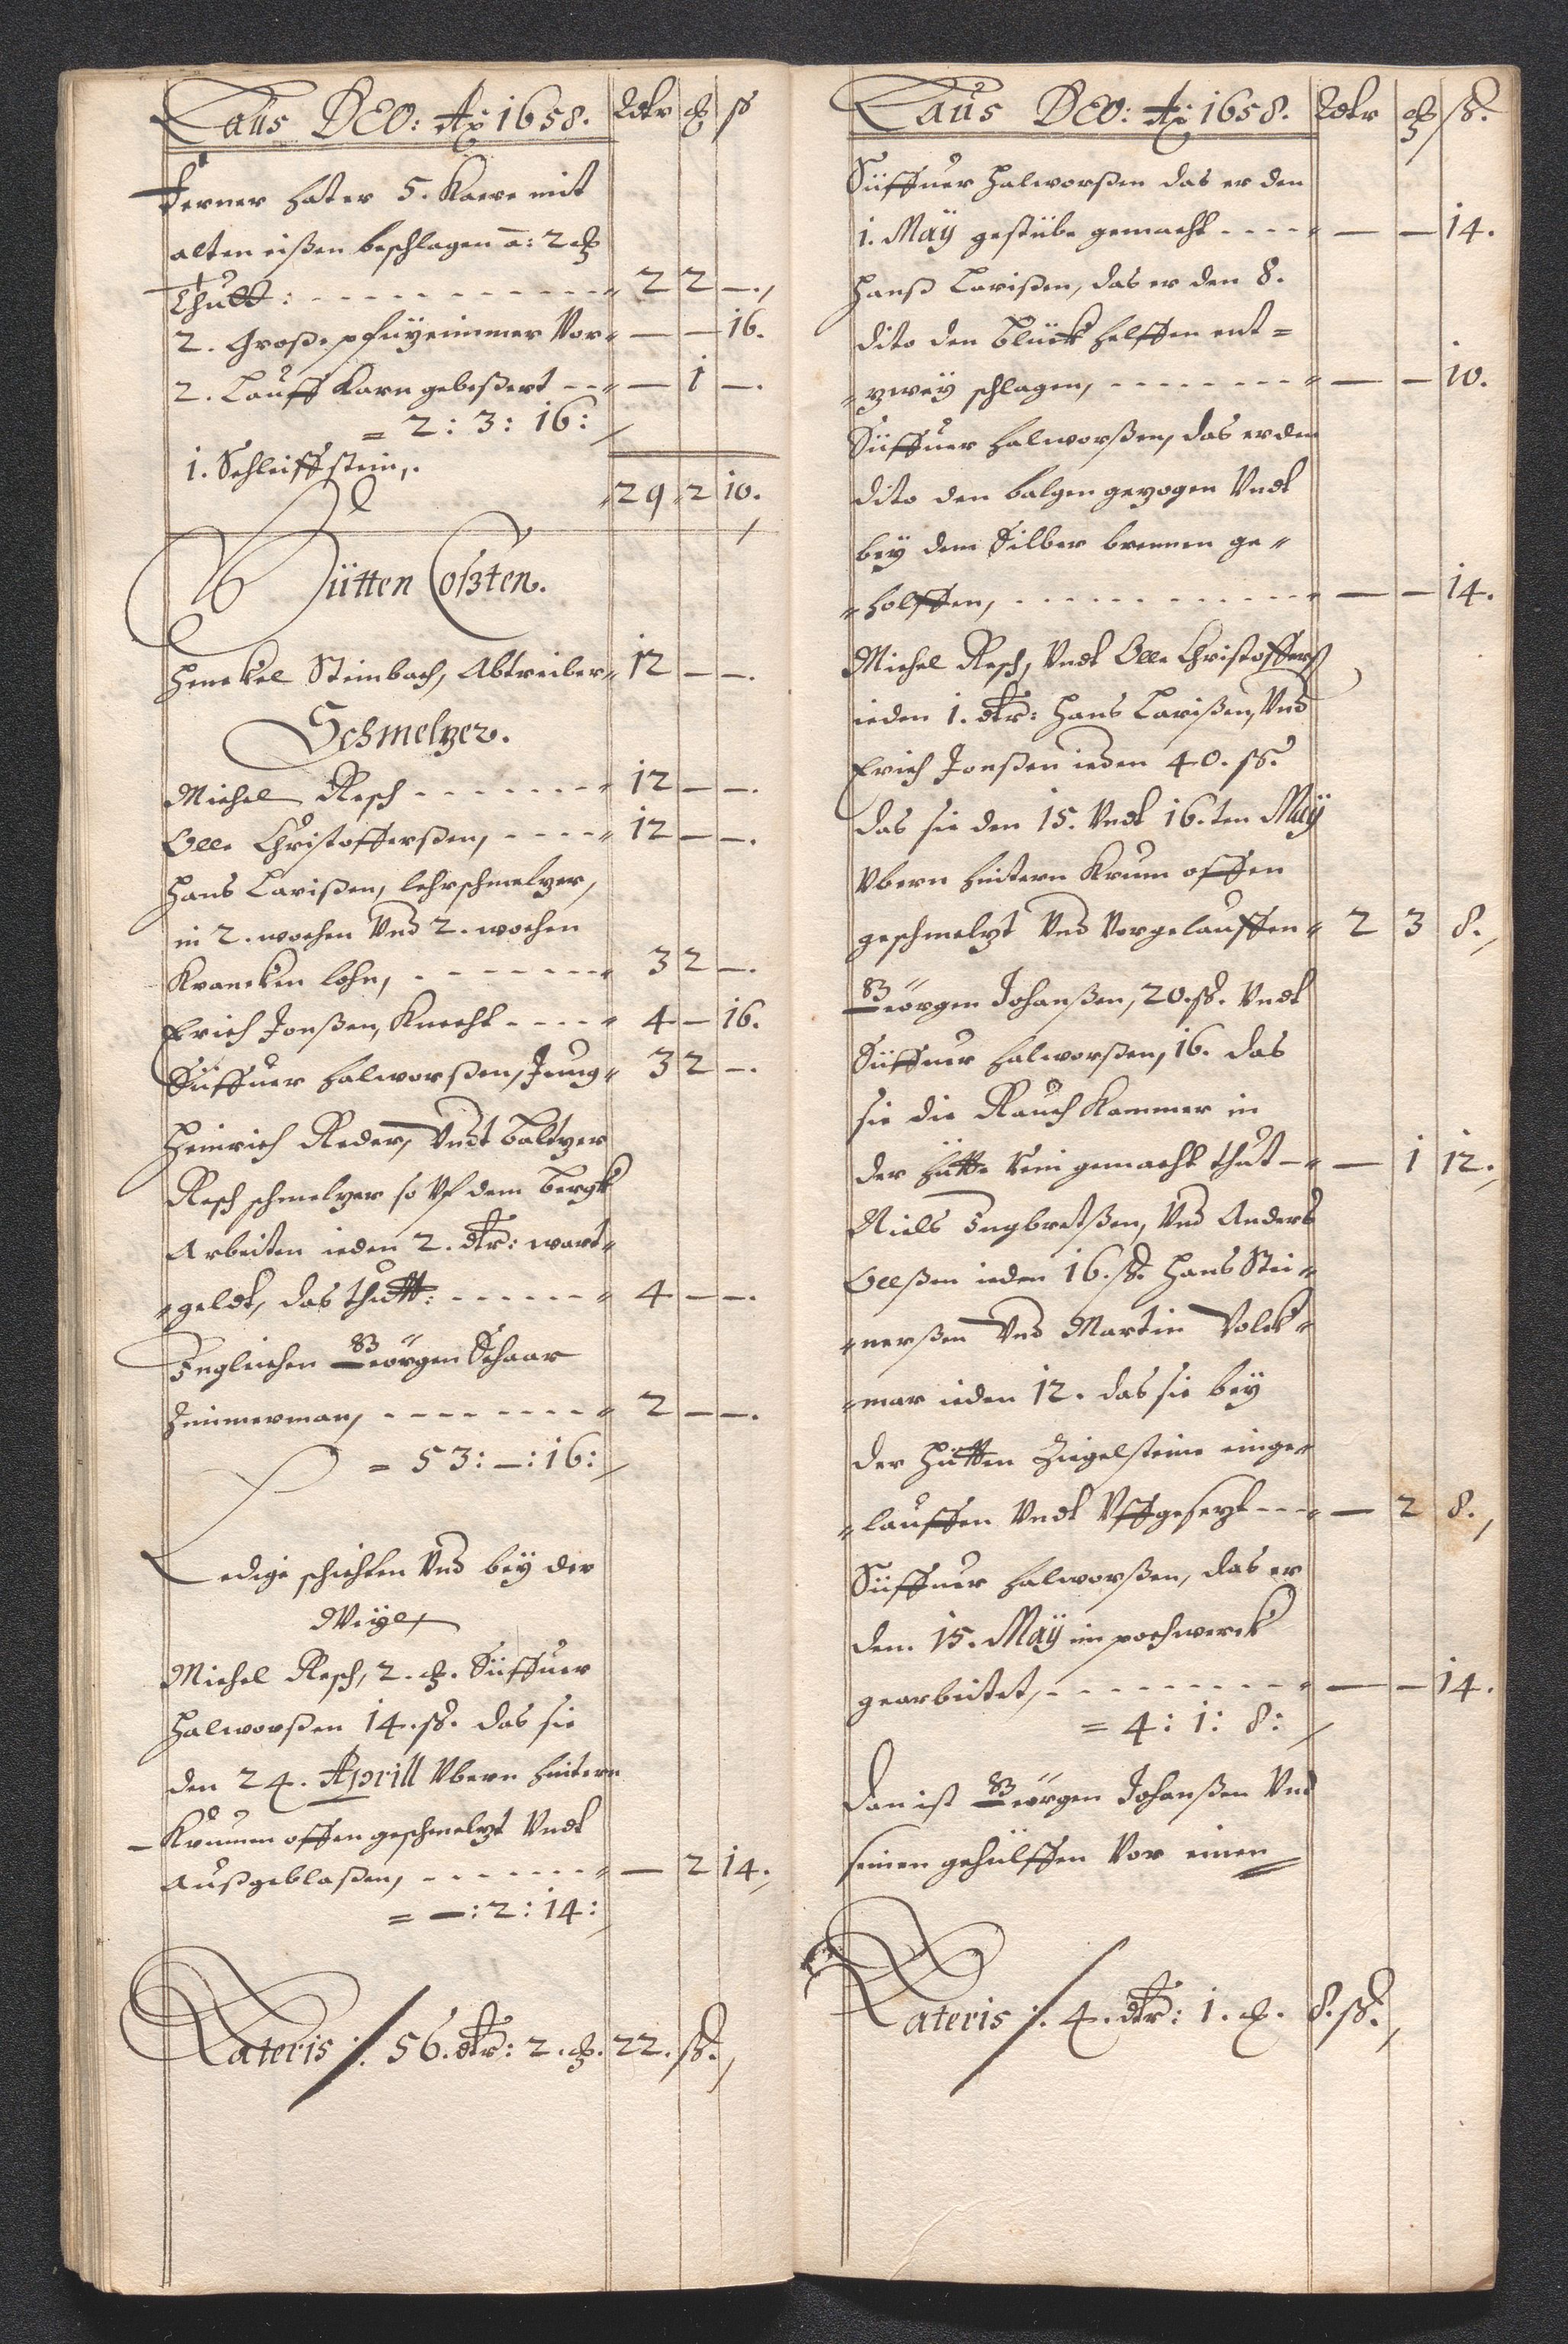 Laus DEO: Ao 1658. Rdtr ₰ ß
Ferner hat er 5. Karre mit
alten eißen beschlagen a: 2 ₰
Thutt: - - - - - - - - - - - " 2 2 —.,
2. Große pfüÿeimmer Vor " — — 16.
2. Lauff Karn gebeßert - - " — 1 —.
= 2: 3: 16:
1. Schleiffstein,.
29 2 10.
Hütten Coßten.
Henckel Steinbach, Abtreiber " 12 — —.
Schmelzer.
Michel Resch - - - - - - - " 12 — —.
Olle Christofferßen, - - - - " 12 — —.
Hans Larißen, lehrschmelzer,
in 2. wochen Und 2. wochen
Krancken lohn, - - - - - - - " 3 2 —.
Erich Jonßen, Knecht - - - - " 4 — 16.
Siiffuer Halworßen, Jung " 3 2 —.
Heinrich Reder, Undt Baltzer
Resch schmelzer so Uf dem bergk
Arbeiten ieden 2. dtr: wart "
" geldt, das thutt: - - - - - - " 4 — —.
Ingleichen Georgen Schaar
Zimmerman, - - - - - - - - " 2 — —.
= 53: —: 16:
Ledige schichten Und bey der
Michel Resch, 2. ₰. Siiffuer
Halworßen 14. ß. das sie
den 24. Aprill Ubern hintern
Krummen offen geschmelzt Undt
Außgeblaßen, - - - - - - - " — 2 14.,
= —: 2: 14:
Lateris ∕. 56. dtr: 2. ₰. 22. ß.,
Laus DEO: Ao 1658. Rdtr ₰ ß.
Siiffuer Halworßen das er den
1. Maÿ gestübe gemacht - - - - " — — 14.
Hanß Larißen, das er den 8.
dito den Blück helffen ent =
" zweÿ schlagen, - - - - - - - - " — — 10.
Siiffuer Halworßen, das er den
dito den balgen gezogen Undt
beÿ dem Silber brennen ge "
" holffen, - - - - - - - - - - - - " — — 14.
Michel Resch, Undt Olle Christofferß
ieden 1. dtr: Hans Larißen, Und
Erich Jonßen ieden 40. ß.
das sie den 15. Undt 16.ten Maÿ
Ubern hintern Krum offen
geschmelzt Und Vorgelauffen " 2 3 8.,
Georgen Johanßen, 20. ß. Undt
Siiffuer Halworßen, 16. das
sie die Rauch Kammer in
der Hütte rein gemacht thut - " — 1 12.,
Niels Ingbretßen, Und Anders
Olßen ieden 16. ß. Hans Stei "
" nerßen Und Martin Volck "
" mar ieden 12. das sie beÿ
der Hütten Ziegelsteine einge "
" lauffen Undt Uffgesezt - - - " — 2 8.,
Siiffuer Halworßen, das er
den. 15. Maÿ im pochwerck
gearbeitet, - - - - - - - - - " — — 14.
= 4: 1: 8:
Dan ist Georgen Johanßen Und
seinen gehülffen Vor einen
Lateris ∕. 4. dtr: 1. ₰. 8. ß.,